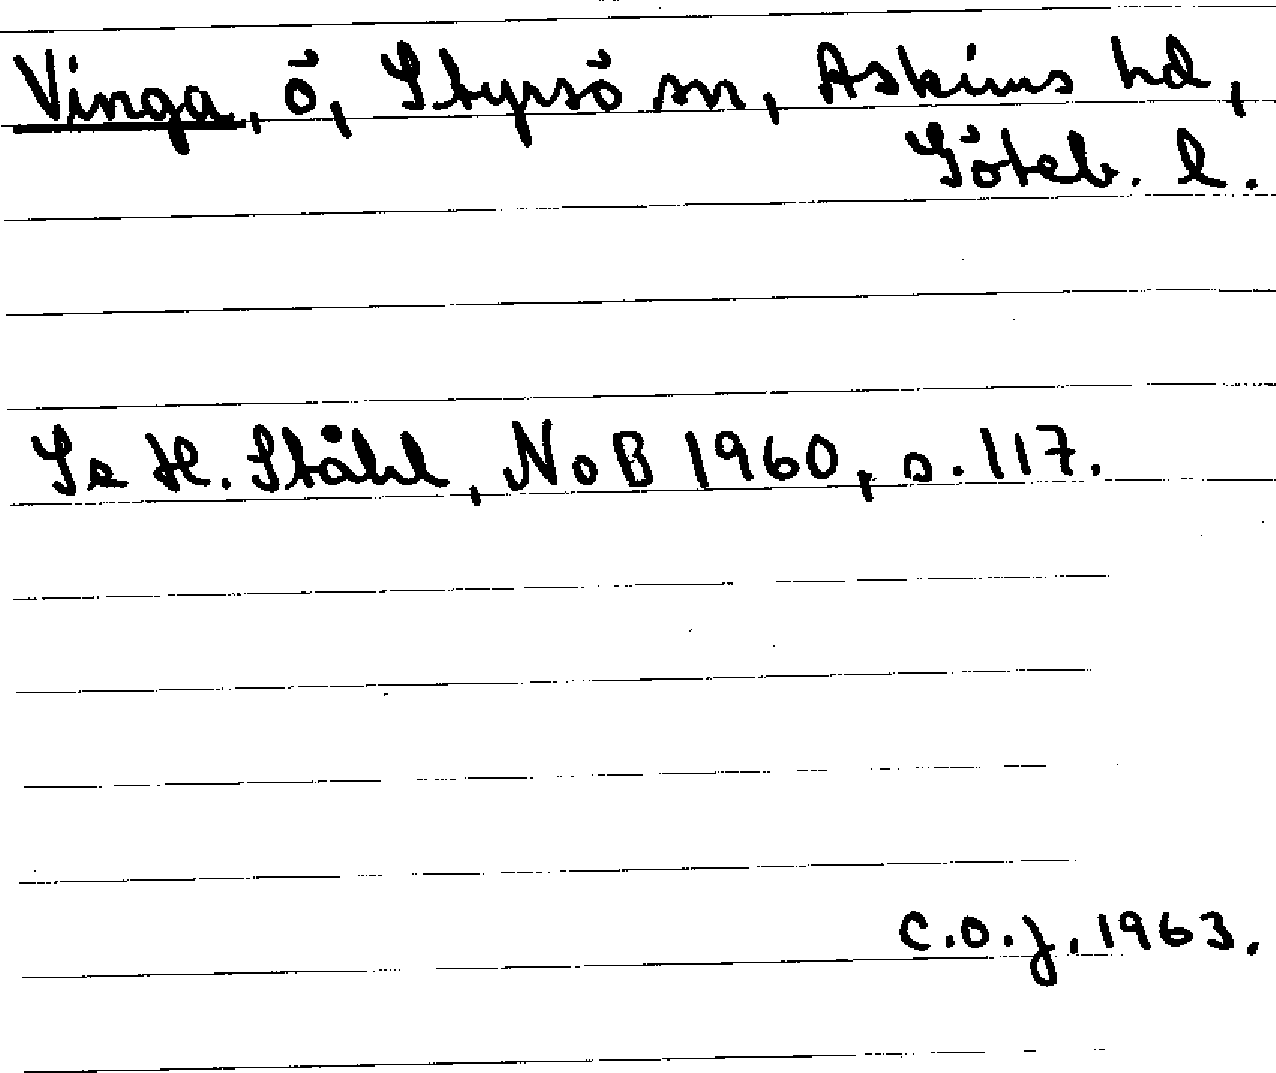 Vinga, ö, Styrsö sn, Askims hd,
Göteb. l.
Se H. Ståhl, NoB 1960, s. 117.
C.O.J. 1963.